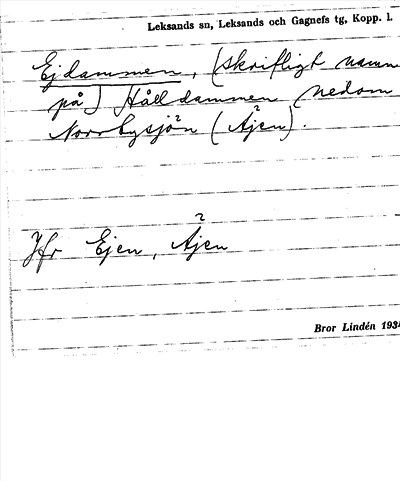 Leksands sn, Leksands och Gagnefs tg, Kopp. l.
Ejdammen, (skrifligt namn
på) Hålldammen nedom
Norrbysjön (Åjen).
Jfr Ejen, Åjen
Bror Lindén 193